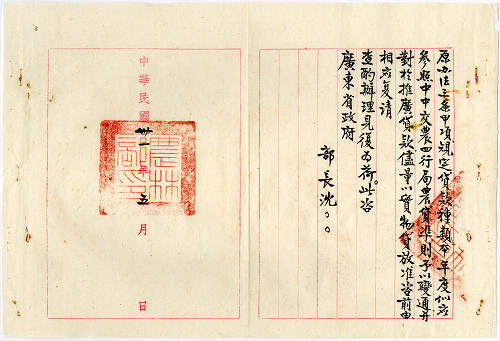 原办法三条甲項規定貸款種類本年度似应
参照中中交農四行局農貸準則予以變通并
對於推廣貸款儘量以實物貸放准咨前由
相应复请
查酌辦理見復为荷此咨
廣東省政府
部長沈
中華民國卅一年五月 日
農林部印